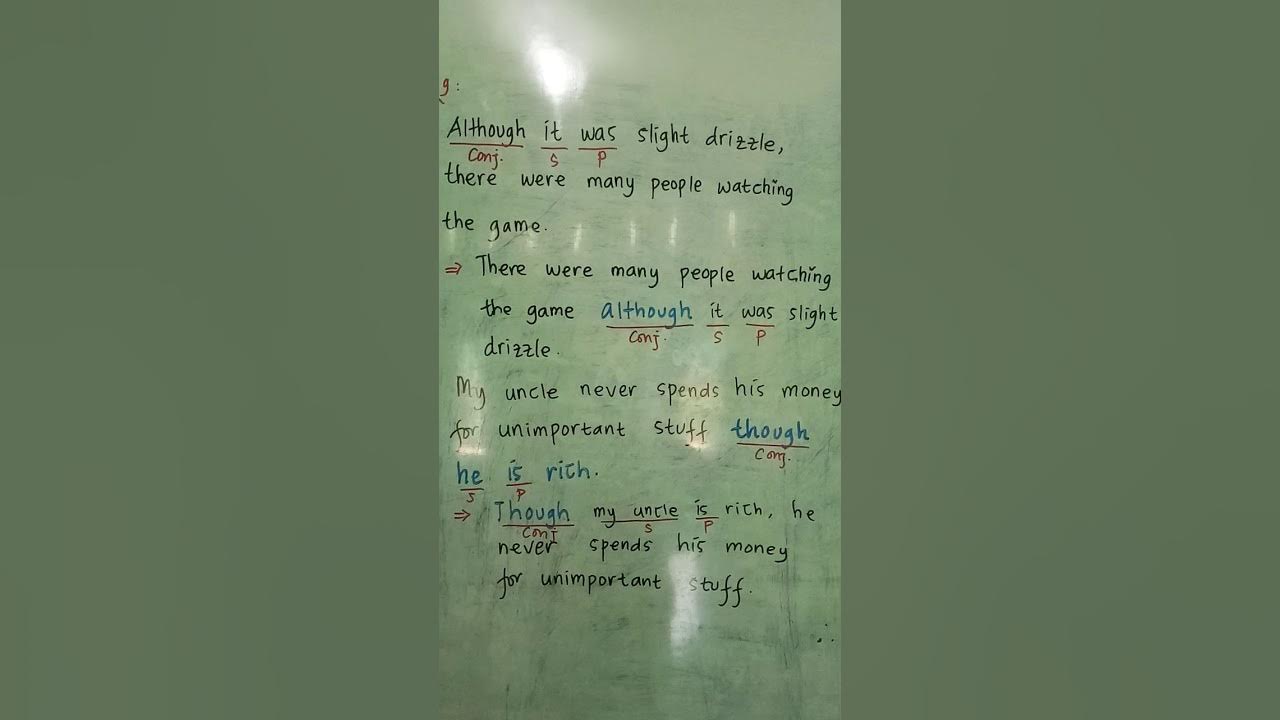 g:
Although it was slight drizzle,
Conj. S P
there were many people watching
the game.
⇒ There were many people watching
the game although it was slight
Conj. S P
drizzle.
My uncle never spends his money
for unimportant stuff though
Conj.
he is rich.
S P
⇒ Though my uncle is rich, he
Conj S P
never spends his money
for unimportant stuff.